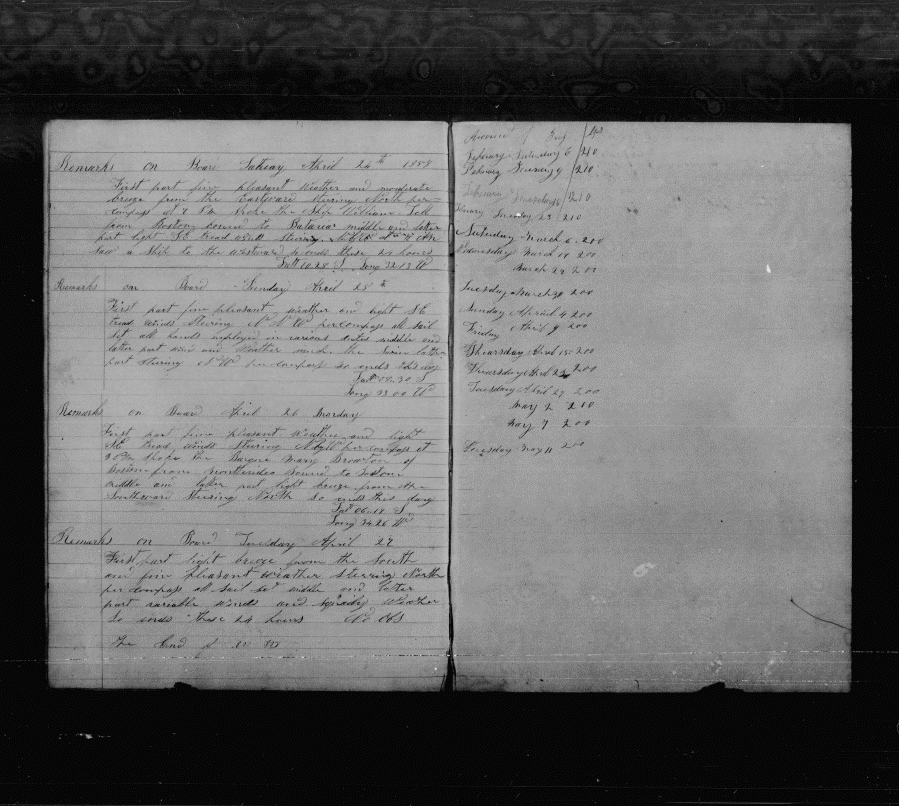 Remarks on Board Satuay April 24th 1858
First part fine pleasant weather and moderate
breeze from the Eastward steering North per
compass at 4 P.M. Spoke the Ship William Tell
from Boston bound to Batavia middle and later
part light SE tread winds steering
Saw a Ship to the Westward So ends these 24 hours
Latt 10.28 S Long 32.13 W
Remarks on Board Sunday April 25th
First part fine pleasant weather and light SE
tread winds Steering N N W per compass all sail
set all hands imployed in various duties middle and
later part wind and weather much the same later
part stearing N W per compass so ends this day
Latt 08.30 S
Long 33.00 W
Remarks on Board April 26 Monday
First part fine pleasant weather and light
SE tread winds stearing N by W per compass at
3 P.M. Spoke the Barque Mary of
Boston from bound to Boston
middle and later part light breeze from the
Southward Steering North So ends this day
Latt 06.18 S
Long 34.26 W
Remarks on Board Tuesday April 27
First part light breeze from the South
and fine pleasant weather steering North
per compass all sail set middle and later
part variable winds and weather
So ends these 24 hours No Obs
The End of
February Saturday 6 210
February 9 210
February 16 210
23 210
Saturday March 6 200
Wednesday March 200
March 200
Tuesday March 30 200
Sunday Aprail 4 200
Friday April 9 200
Thearsday April 15 200
Thearsday April 22 200
Tuesday April 27 200
May 2 200
May 7 200
Tuesday May 11 200